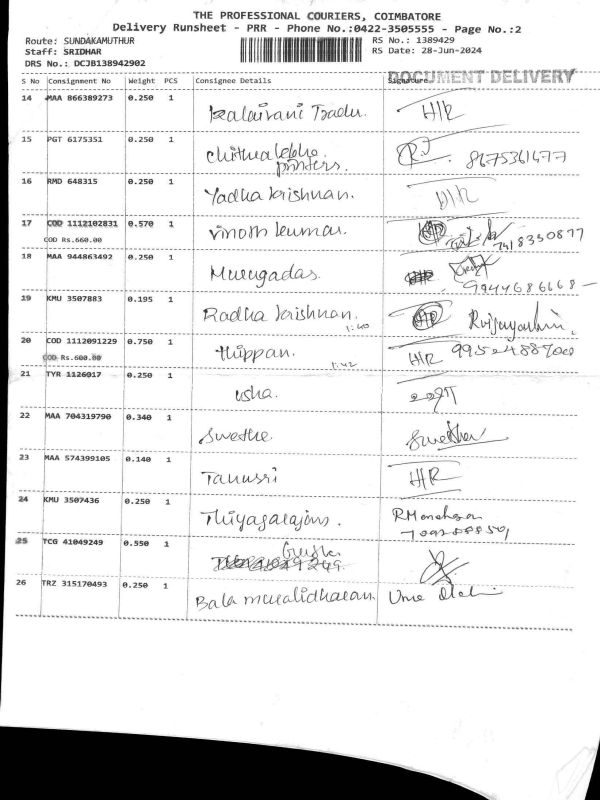 THE PROFESSIONAL COURIERS, COIMBATORE
Delivery Runsheet - PRR - Phone No.:0422-3505555 - Page No.:2
Route: SUNDAKAMUTHUR
RS No.: 1389429
Staff: SRIDHAR
RS Date: 28-Jun-2024
DRS No.: DCJB138942902
DOCUMENT DELIVERY
S No Consignment No Weight PCS Consignee Details Signature
14 MAA 866389273 0.250 1 H/R
15 PGT 6175351 0.250 1 printers. 8675361477
16 RMD 648315 0.250 1 Yadha krishnan. H/R
17 COD 1112102831 0.570 1 Vinoth kumar.
COD Rs.660.00 7418330877
18 MAA 944863492 0.250 1 Murugadas. 9944686668
19 KMU 3507883 0.195 1 Radha krishnan.
1:40
20 COD 1112091229 0.750 1 thippan. H/R
COD Rs.600.00 1:42
21 TYR 1126017 0.250 1 usha.
22 MAA 704319790 0.340 1 Swethe.
23 MAA 574399105 0.140 1 Tanussri H/R
24 KMU 3507436 0.250 1 Thiyagarajans.
25 TCG 41049249 0.550 1
26 TRZ 315170493 0.250 1 Bala muralidharan. Uma